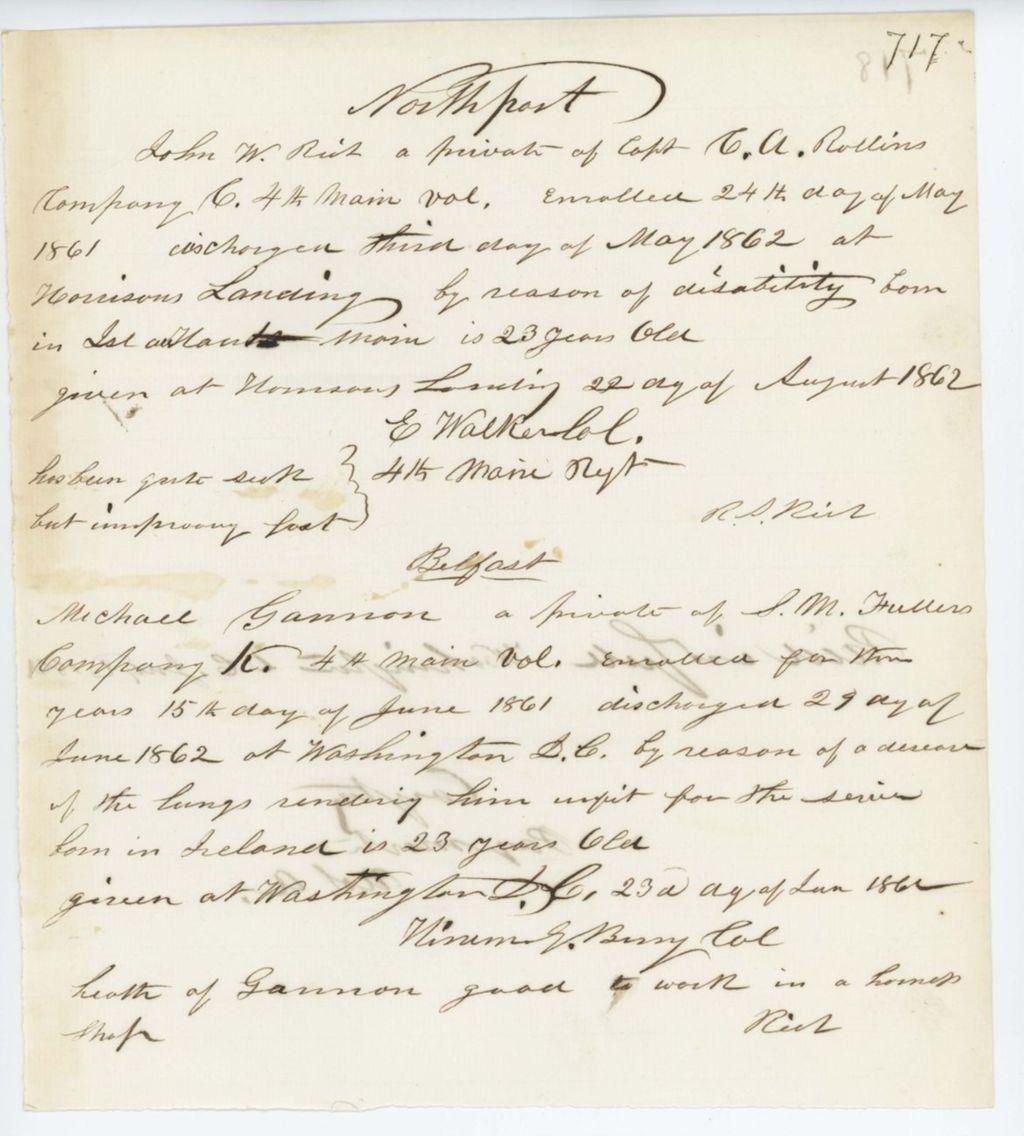 717
Northport
John W. Rich a private of Capt C. A. Rollins
Company C. 4th Main vol. Enrolled 24th day of May
1861 discharged third day of May 1862 at
Harrisons Landing by reason of disability born
in Isl au Haut Main is 23 years Old
given at Harrisons Landing 22 day of August 1862
E Walker Col.
4th Maine Regt
has been quite sick
but improving fast
R. S. Rich
Belfast
Michael Gannon a private of S. M. Fullers
Company K. 4th Main Vol. Enrolled for three
years 15th day of June 1861 discharged 29 day of
June 1862 at Washington D.C. by reason of a disease
of the lungs rendering him unfit for the service
born in Ireland is 23 years Old
given at Washington D.C. 23d day of Jan 1862
Hirem G. Berry Col
heath of Gannon good to work in a harness
shop
Rich